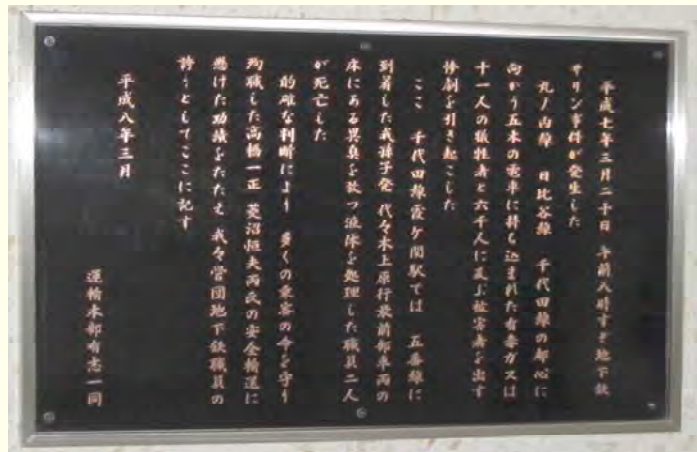 平成七年三月二十日 午前八時すぎ地下鉄
サリン事件が発生した
丸ノ内線 日比谷線 千代田線の都心に
向かう五本の電車に持ち込まれた有毒ガスは
十一人の犠牲者と六千人に及ぶ被害者を出す
惨劇を引き起こした
ここ 千代田線霞ケ関駅では 五番線に
到着した我孫子発 代々木上原行最前部車両の
床にある異臭を放つ液体を処理した職員二人
が死亡した
的確な判断により 多くの乗客の命を守り
殉職した高橋一正 菱沼恒夫両氏の安全輸送に
懸けた功績をたたえ 我々営団地下鉄職員の
誇りとしてここに記す
平成八年三月
運輸本部有志一同